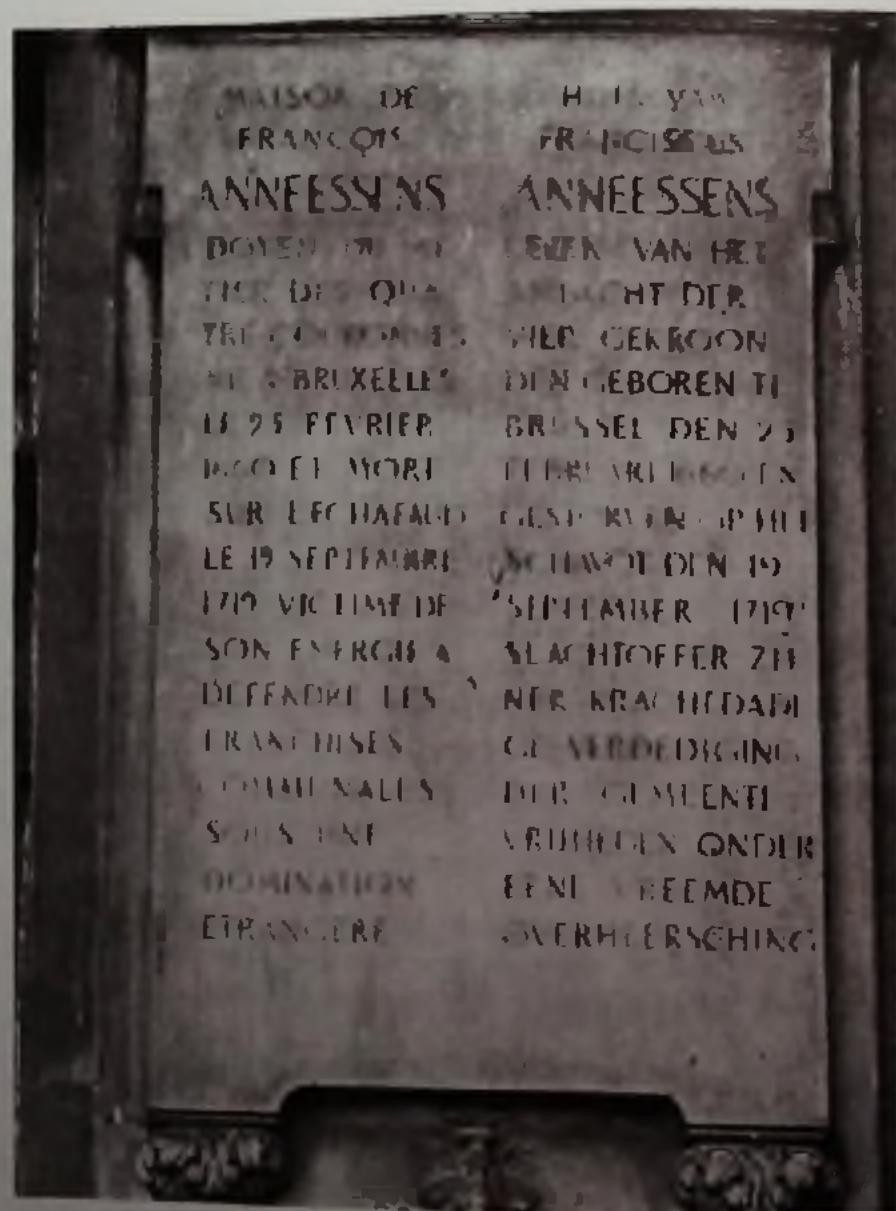 MAISON DE
FRANÇOIS
ANNEESSENS
DOYEN DU
DES QUA
TRE COURONNES
BRUXELLES
LE 25 FEVRIER
ET MORT
SUR L'ECHAFAUD
LE 19 SEPTEMBRE
1719 VICTIME DE
SON ENERGIE A
DEFENDRE LES
FRANCHISES
COMMUNALES
SOUS UNE
DOMINATION
ETRANGERE
HUIS VAN
FRANCISCUS
ANNEESSENS
DEKEN VAN HET
AMBACHT DER
VIER GEKROON
DEN GEBOREN TE
BRUSSEL DEN 25
FEBRUARI EN
GESTORVEN OP HET
SCHAVOT DEN 19
SEPTEMBER 1719
SLACHTOFFER ZIJ
NER KRACHTDADI
GE VERDEDIGING
DER GEMEENTE
VRIJHEDEN ONDER
EENE VREEMDE
OVERHEERSCHING